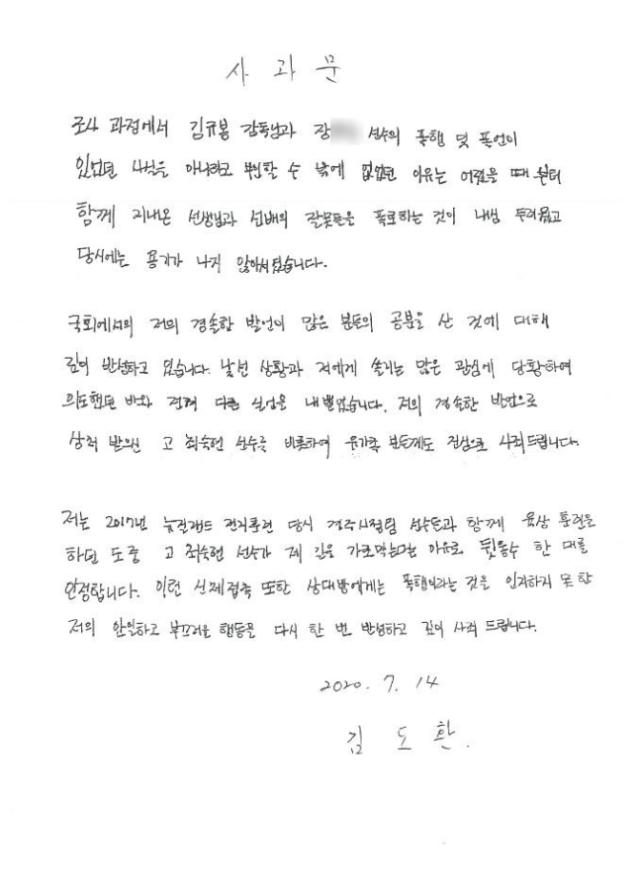 사과문
조사 과정에서 김규봉 감독님과 장 선수의 폭행 및 폭언이
있었던 사실을 아니라고 부인할 수 밖에 없었던 이유는 어렸을 때 부터
함께 지내온 선생님과 선배의 잘못들을 폭로하는 것이 내심 두려웠고
당시에는 용기가 나지 않아서였습니다.
국회에서의 저의 경솔한 발언이 많은 분들의 공분을 산 것에 대해
깊이 반성하고 있습니다. 낯선 상황과 저에게 쏠리는 많은 관심에 당황하여
의도했던 바와 전혀 다른 실언을 내뱉었습니다. 저의 경솔한 발언으로
상처 받으신 고 최숙현 선수를 비롯하여 유가족 분들께도 진심으로 사죄드립니다.
저는 2017년 뉴질랜드 전지훈련 당시 경주시청팀 선수들과 함께 육상 훈련을
하던 도중 고 최숙현 선수가 제 길을 가로막는다는 이유로 뒷통수 한 대를
인정합니다. 이런 신체접촉 또한 상대방에게는 폭행이라는 것을 인지하지 못한
저의 안일하고 부끄러운 행동을 다시 한 번 반성하고 깊이 사죄 드립니다.
2020. 7. 14
김도환.